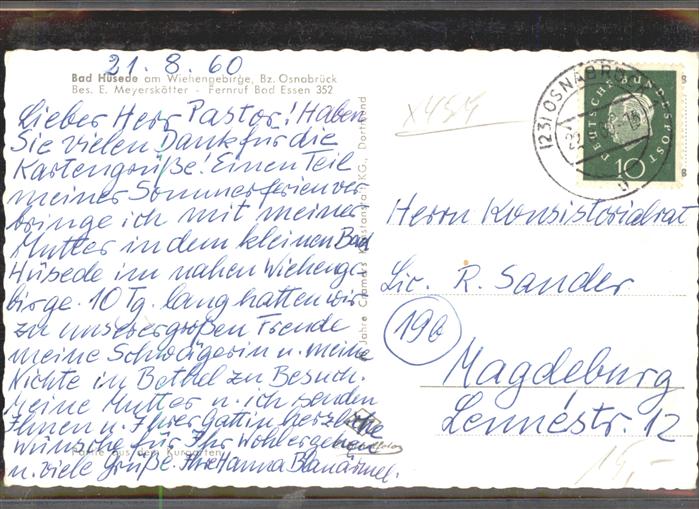 21.8.60
Bad Hüsede am Wiehengebirge, Bz. Osnabrück
Bes. E. Meyerskötter - Fernruf Bad Essen 352
Lieber Herr Pastor! Haben
Sie vielen Dank für die
Kartengrüße! Einen Teil
meiner Sommerferien ver
bringe ich mit meiner
Mutter in dem kleinen Bad
Hüsede im nahen Wiehenge
birge. 10 Tg. lang hatten wir
zu unserer großen Freude
meine Schwägerin u. meine
Nichte in Bethel zu Besuch.
Meine Mutter u. ich senden
Ihnen u. Ihrer Gattin herzliche
Wünsche für Ihr Wohlergehen
u. viele Grüße. Ihre Hanna
Partie aus dem Kurgarten
Cramers Kunstanstalt KG., Dortmund
x454
(23) OSNABRÜCK
DEUTSCHE BUNDESPOST
10
Herrn Konsistorialrat
Lic. R. Sander
19b
Magdeburg
Lennéstr. 12
15,-